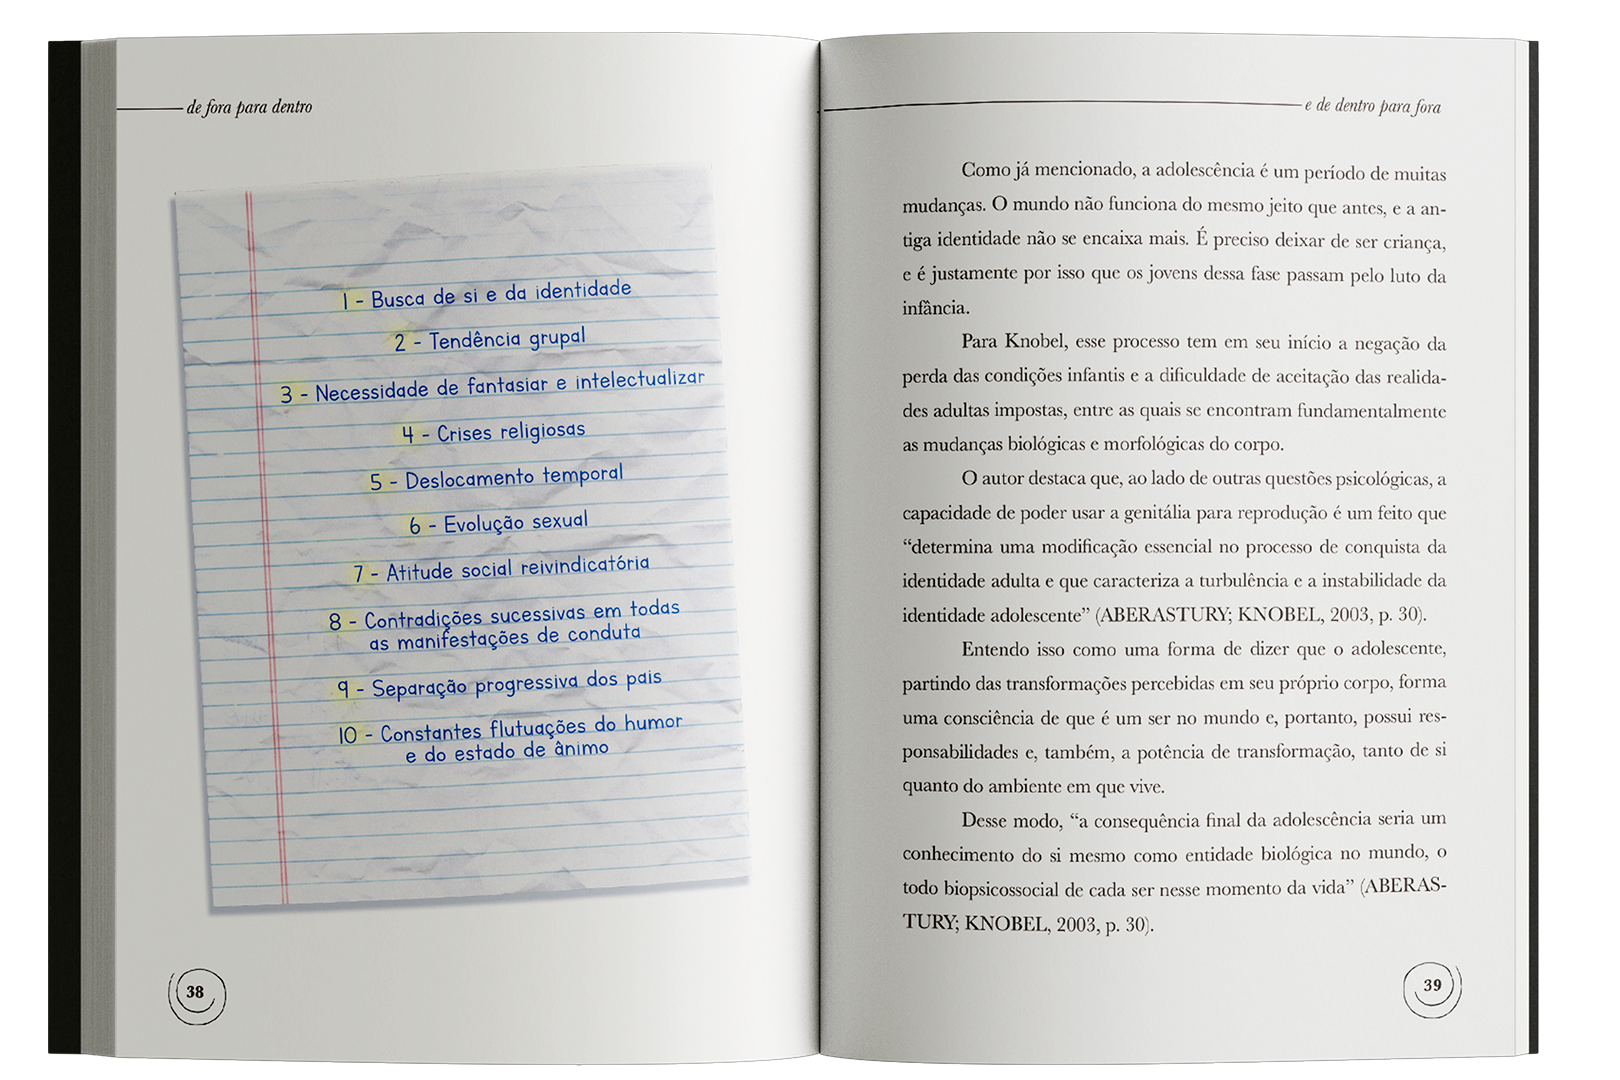 de fora para dentro
1 - Busca de si e da identidade
2 - Tendência grupal
3 - Necessidade de fantasiar e intelectualizar
4 - Crises religiosas
5 - Deslocamento temporal
6 - Evolução sexual
7 - Atitude social reivindicatória
8 - Contradições sucessivas em todas
as manifestações de conduta
9 - Separação progressiva dos pais
10 - Constantes flutuações do humor
e do estado de ânimo
38
e de dentro para fora
Como já mencionado, a adolescência é um período de muitas
mudanças. O mundo não funciona do mesmo jeito que antes, e a an-
tiga identidade não se encaixa mais. É preciso deixar de ser criança,
e é justamente por isso que os jovens dessa fase passam pelo luto da
infância.
Para Knobel, esse processo tem em seu início a negação da
perda das condições infantis e a dificuldade de aceitação das realida-
des adultas impostas, entre as quais se encontram fundamentalmente
as mudanças biológicas e morfológicas do corpo.
O autor destaca que, ao lado de outras questões psicológicas, a
capacidade de poder usar a genitália para reprodução é um feito que
“determina uma modificação essencial no processo de conquista da
identidade adulta e que caracteriza a turbulência e a instabilidade da
identidade adolescente” (ABERASTURY; KNOBEL, 2003, p. 30).
Entendo isso como uma forma de dizer que o adolescente,
partindo das transformações percebidas em seu próprio corpo, forma
uma consciência de que é um ser no mundo e, portanto, possui res-
ponsabilidades e, também, a potência de transformação, tanto de si
quanto do ambiente em que vive.
Desse modo, “a consequência final da adolescência seria um
conhecimento do si mesmo como entidade biológica no mundo, o
todo biopsicossocial de cada ser nesse momento da vida” (ABERAS-
TURY; KNOBEL, 2003, p. 30).
39